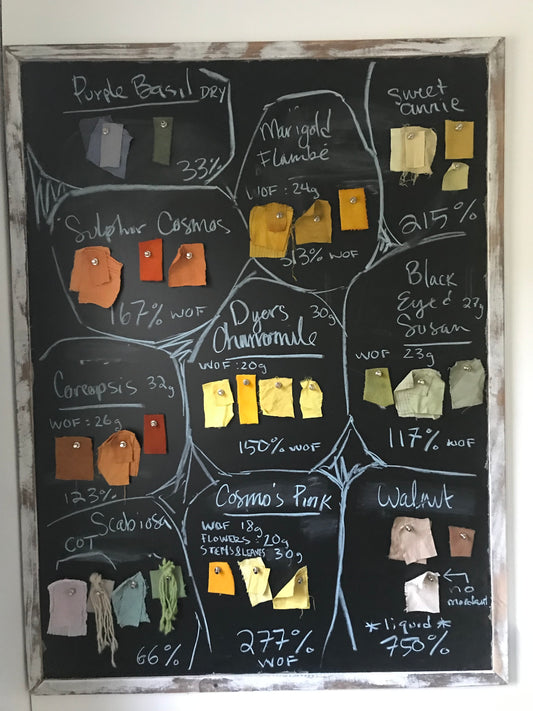 Purple Basil DRY
33%
Marigold
Flambé
WOF : 24g
313% WOF
Sweet
annie
215%
Sulphur Cosmos
167% WOF
Dyers 30g
Chamomile
WOF : 20g
150% WOF
Black
Eye'd 27g
Susan
WOF 23g
117% WOF
Coreopsis 32g
WOF : 26g
123%
Cosmo's Pink
WOF 18g
FLOWERS : 20g
STEMS & LEAVES : 30g
277%
WOF
Walnut
no
mordant
*liquid*
750%
Scabiosa
COT
66%